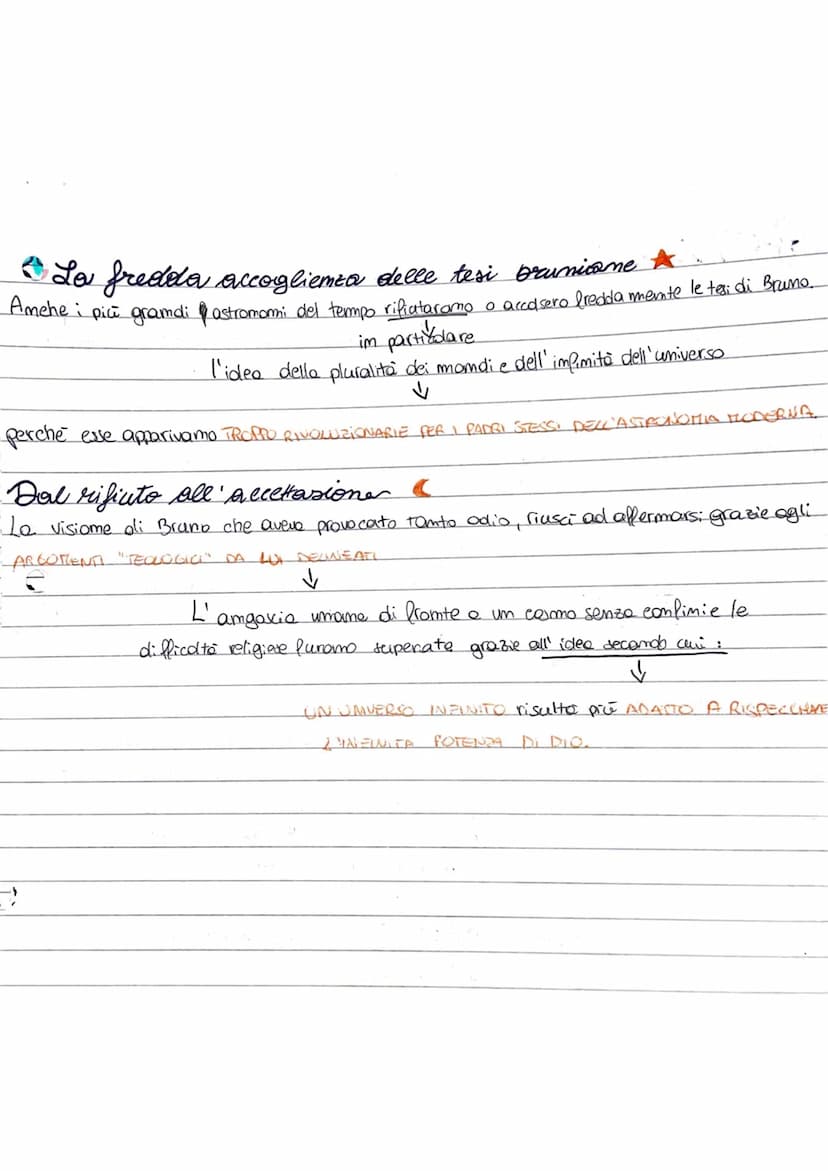 La fredda accoglienza delle tesi bruniane
Anche i più grandi astronomi del tempo rifiutarano o accolsero freddamente le tesi di Bruno.
in particolare
l'idea della pluralità dei mondi e dell'infinità dell'universo
perché esse apparivano TROPPO RIVOLUZIONARIE PER I PADRI STESSI DELL'ASTRONOMIA MODERNA.
Dal rifiuto all'accettazione
La visione di Bruno che aveva provocato tanto odio, riuscì ad affermarsi grazie agli
ARGOMENTI "TEOLOGICI" DA LUI DELINEATI
L'angoscia umana di fronte a un cosmo senza confini e le
difficoltà religiose furono superate grazie all'idea secondo cui :
UN UNIVERSO INFINITO risulta più ADATTO A RISPECCHIARE
L'INFINITA POTENZA DI DIO.